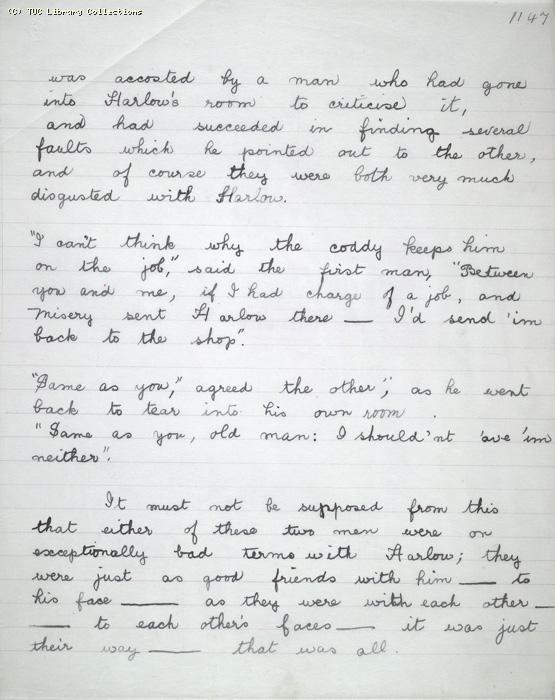 (C) TUC Library Collections
1147
was accosted by a man who had gone
into Harlow's room to criticise it,
and had succeeded in finding several
faults which he pointed out to the other,
and of course they were both very much
disgusted with Harlow.
"I can't think why the coddy keeps him
on the job," said the first man, "Between
you and me, if I had charge of a job, and
Misery sent Harlow there — I'd send 'im
back to the shop".
"Same as you," agreed the other", as he went
back to tear into his own room.
"Same as you, old man: I should'nt 'ave 'im
neither".
It must not be supposed from this
that either of these two men were on
exceptionally bad terms with Harlow; they
were just as good friends with him — to
his face — as they were with each other —
— to each other's faces — it was just
their way — that was all.